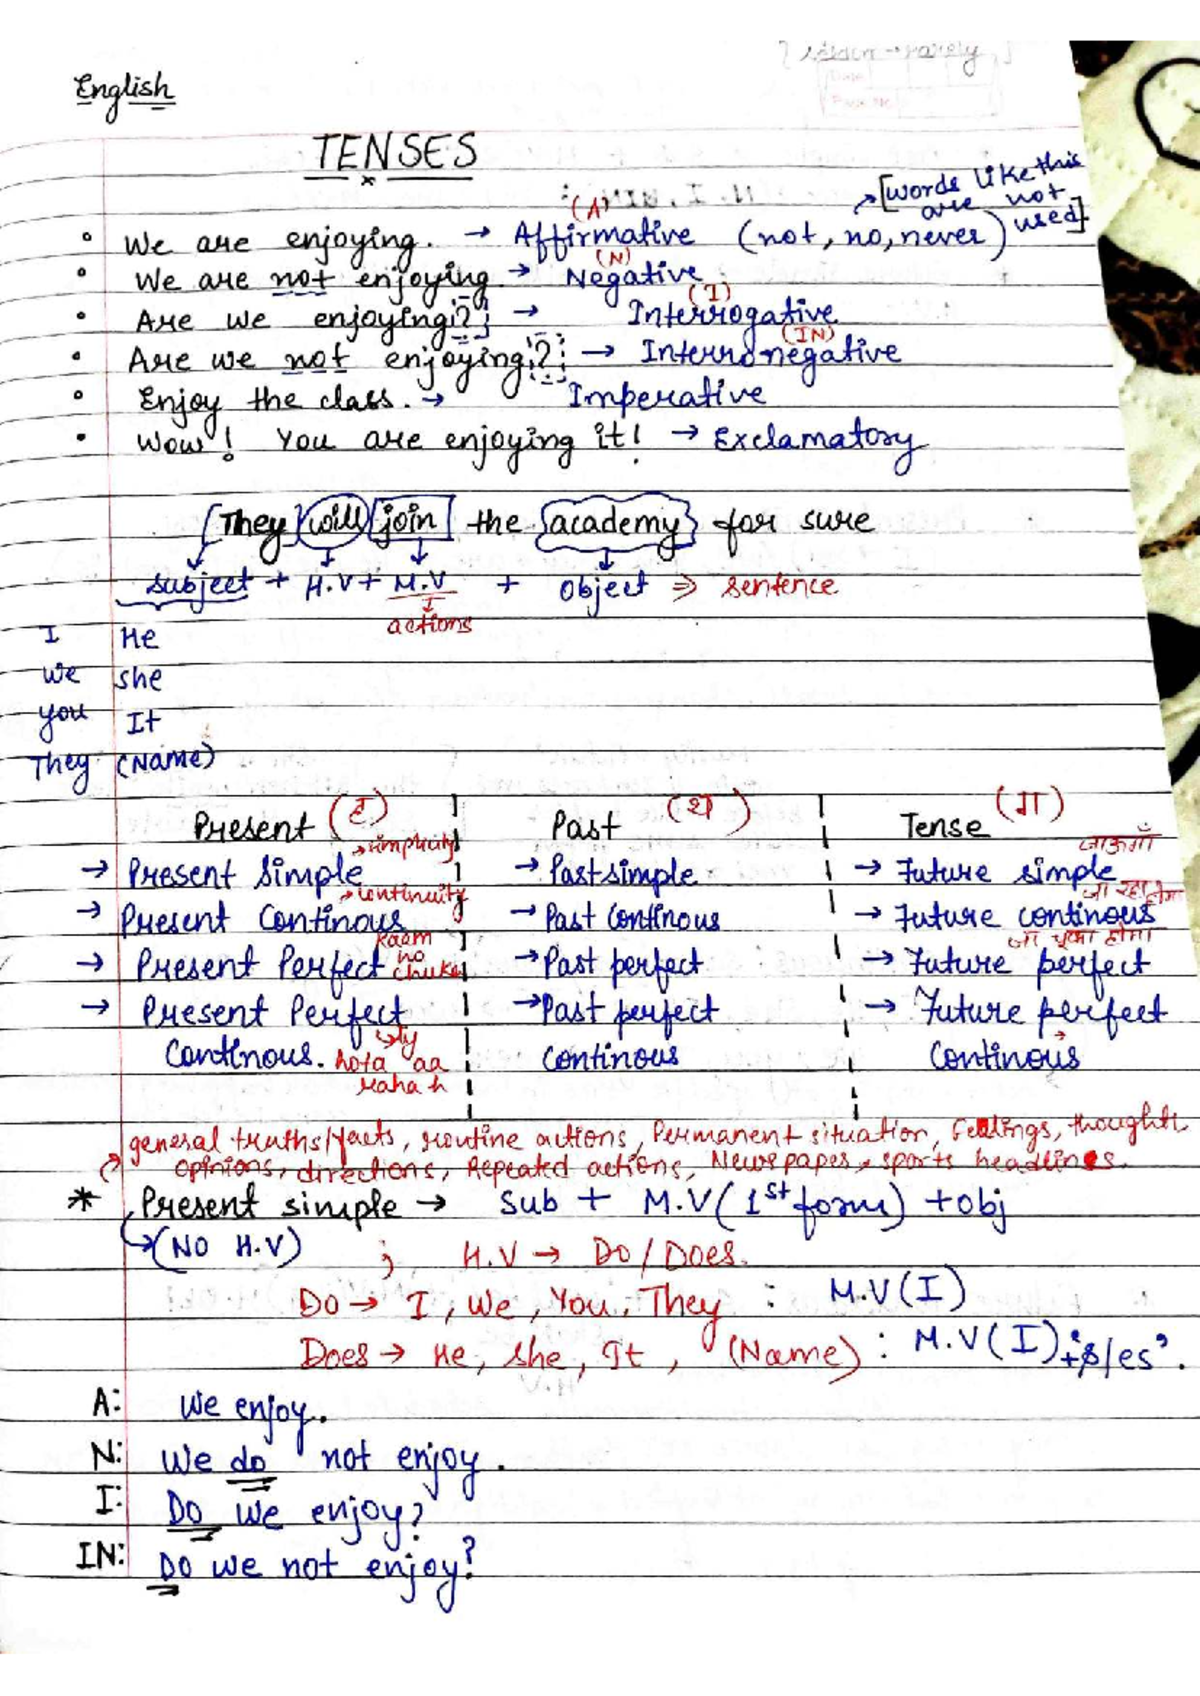 [seldom → rarely]
English
TENSES
→ [words like this are not used]
• We are enjoying. → Affirmative (A) (not, no, never)
• We are not enjoying → Negative (N)
• Are we enjoying? → Interrogative (I)
• Are we not enjoying? → Interronegative (IN)
• Enjoy the class. → Imperative
• Wow! You are enjoying it! → Exclamatory
They will join the academy for sure
subject + H.V + M.V + object ⇒ sentence
I
actions
I He
We she
you It
They (Name)
Present (ह) Past (थ) Tense (गा)
→ simplicity जाऊगाँ
→ Present Simple → Past simple → Future simple
→ continuity जा रहा होगा
→ Present Continous → Past Continous → Future continous
kaam ho chuka जा चुका होगा
→ Present Perfect → Past perfect → Future perfect
→ Present Perfect → Past perfect → Future perfect
Continous. Continous Continous
→ ty
hota aa
raha h
general truths/facts, routine actions, Permanent situation, Feelings, thoughts
opinions, directions, Repeated actions, Newspapers, sports headlines.
* Present simple → Sub + M.V (1st form) + obj
→ (NO H.V) ; H.V → Do/Does.
Do → I, We, You, They : M.V (I)
Does → He, She, It, (Name) : M.V (I) + 's/es'.
A: We enjoy.
N: We do not enjoy.
I: Do we enjoy?
IN: Do we not enjoy?